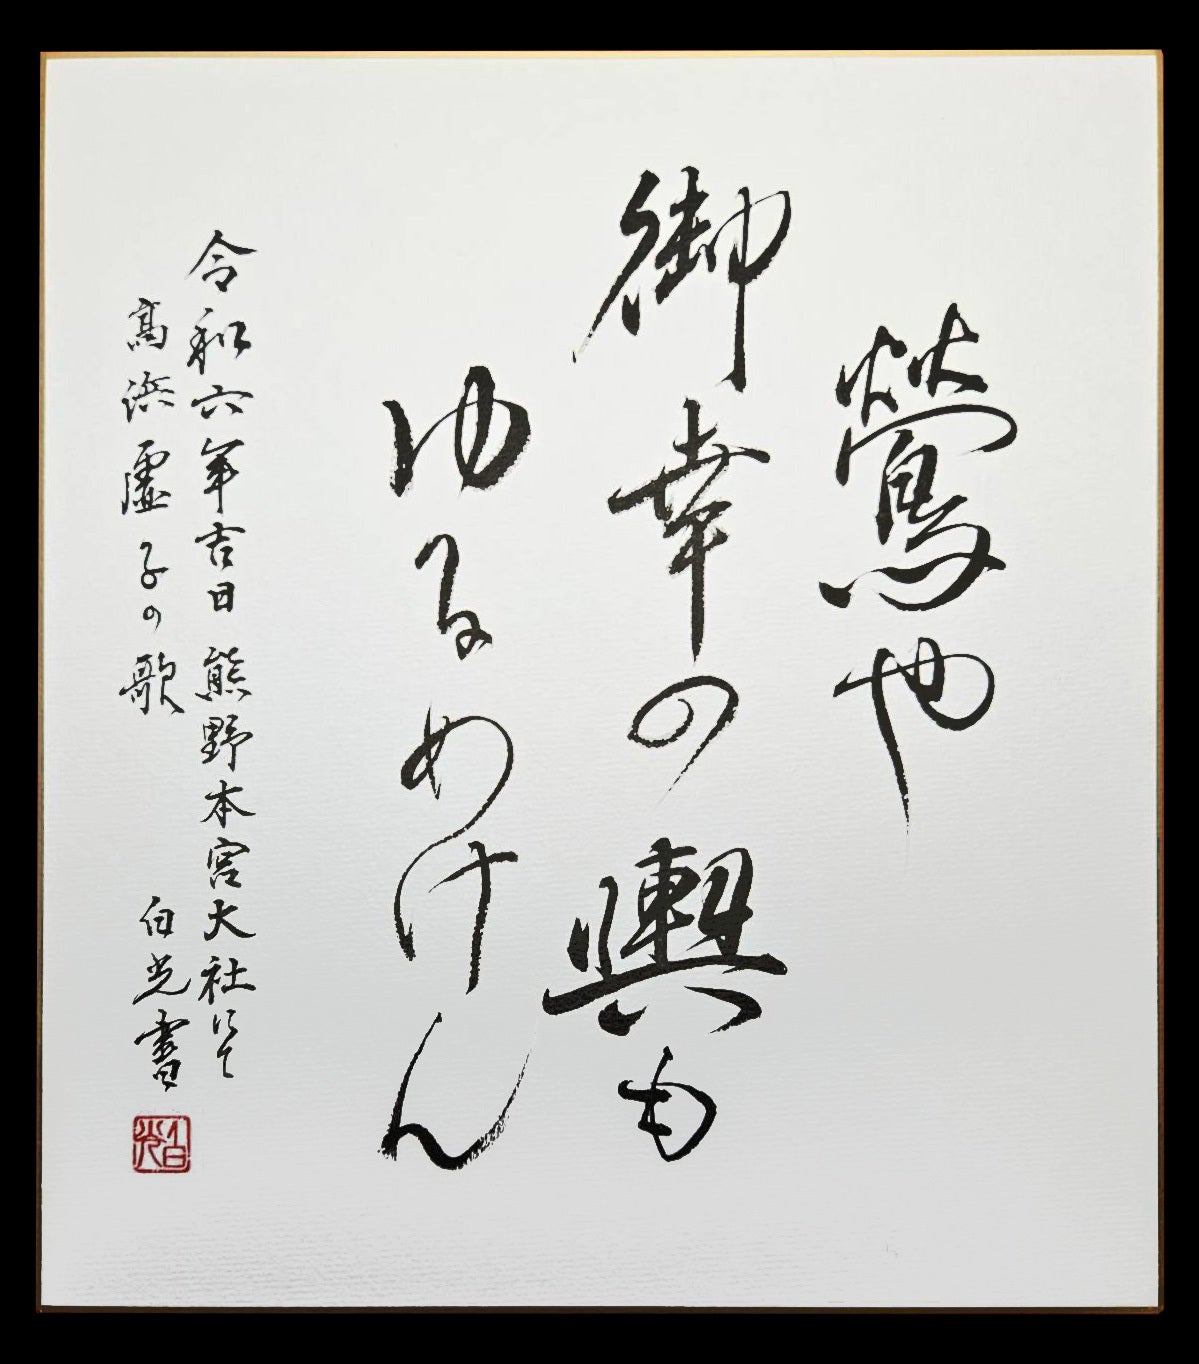 鶯や
御幸の輿も
ゆるめけん
令和六年吉日 熊野本宮大社にて
高浜虚子の歌
白光書
白光